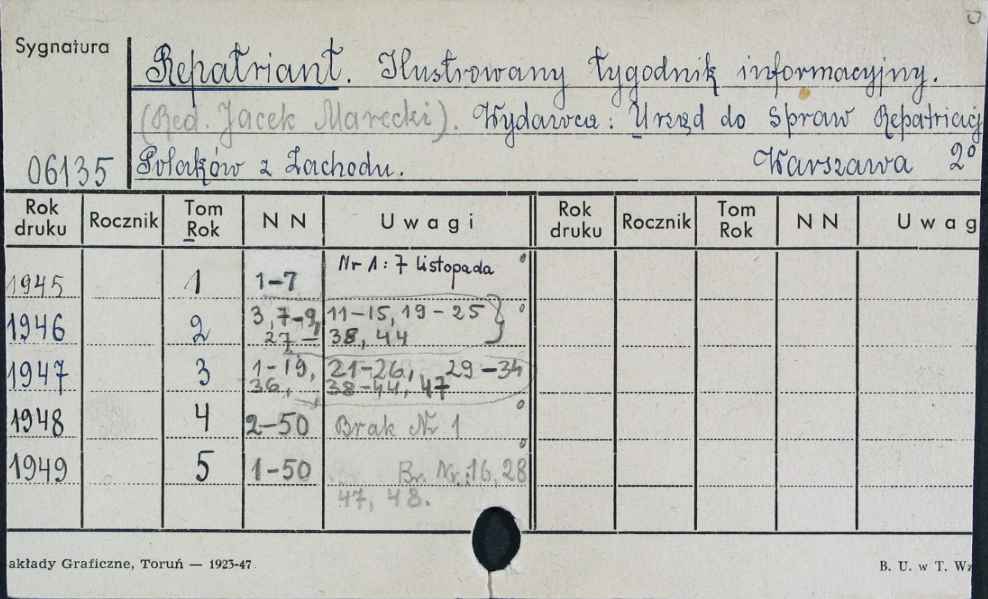 Sygnatura
Repatriant. Ilustrowany tygodnik informacyjny.
(Red. Jacek Marecki). Wydawca: Urząd do Spraw Repatriacji
06135 Polaków z Zachodu. Warszawa 2°
Rok druku Rocznik Tom Rok N N Uwagi Rok druku Rocznik Tom Rok N N Uwag
1945 1 1-7 Nr 1: 7 listopada
1946 2 3, 7-9, 11-15, 19-25
27- 38, 44
1947 3 1-19, 21-26, 29-34
36, 38-44, 47
1948 4 2-50 Brak Nr 1
1949 5 1-50 Br. Nr.: 16, 28
47, 48.
akłady Graficzne, Toruń — 1923-47 B. U. w T. Wz